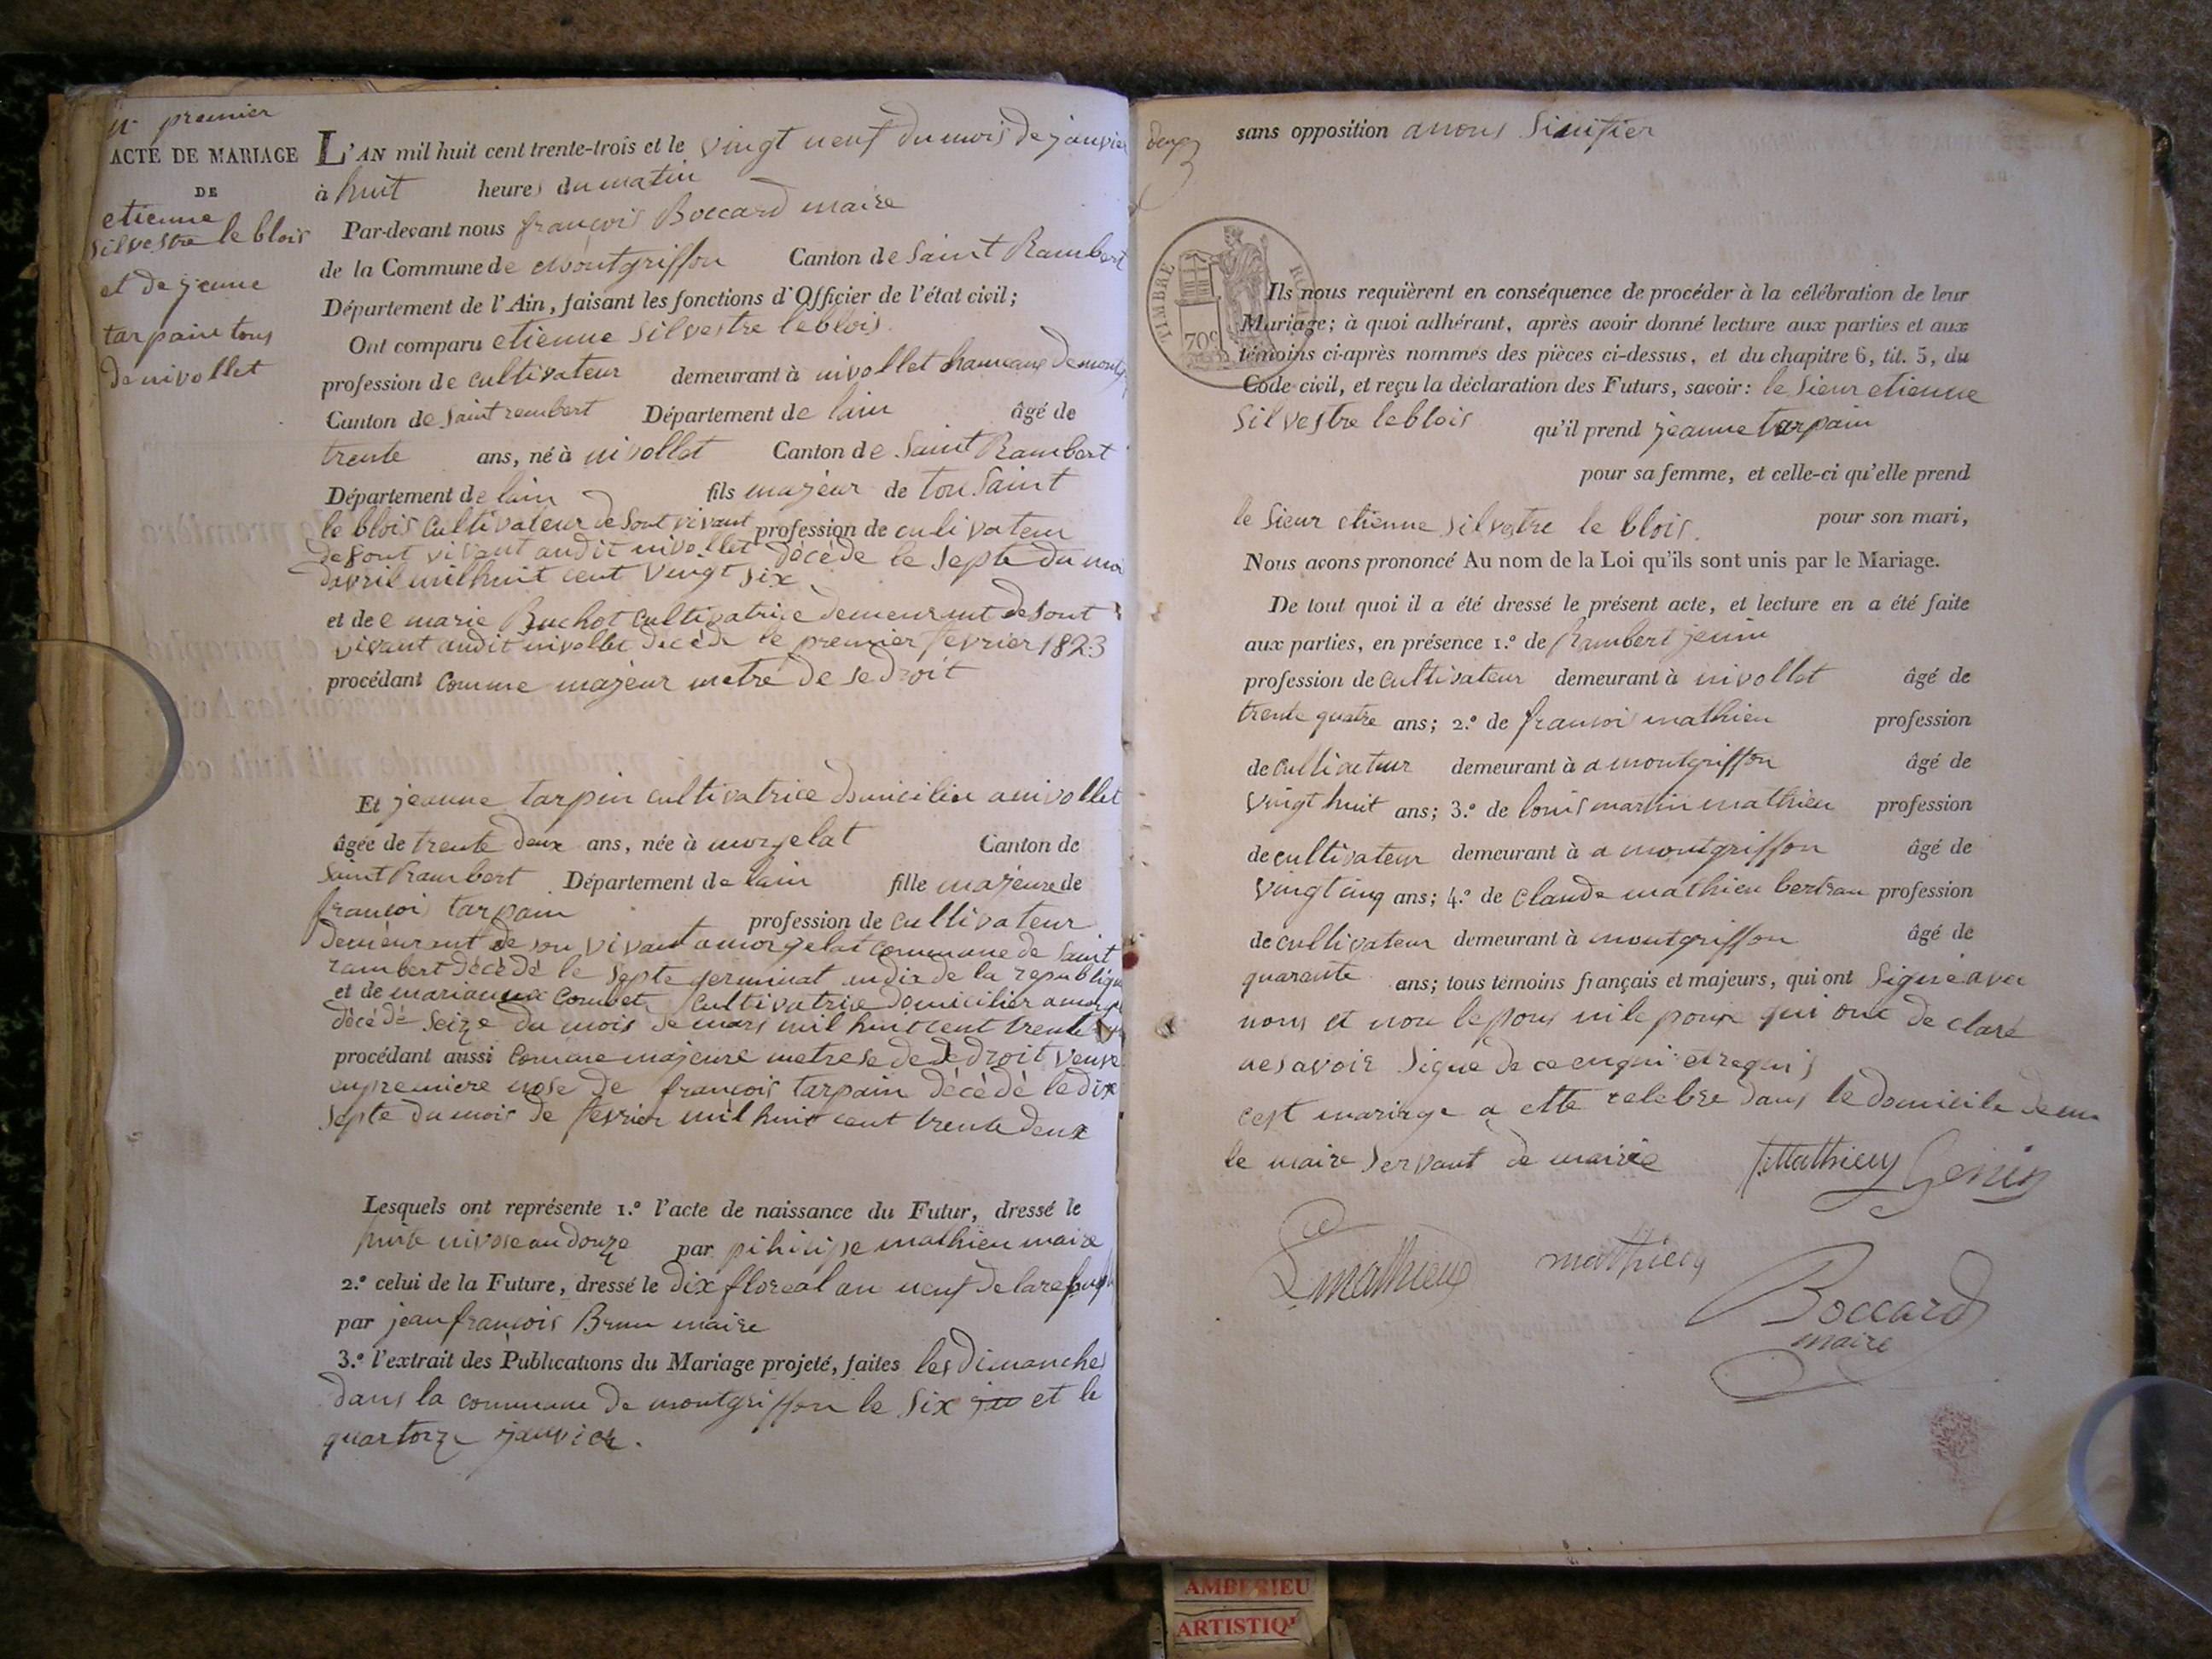 n.o premier
ACTE DE MARIAGE
DE
etienne
silvestre le blois
et de jeanne
tarpain tous
de nivollet
L'AN mil huit cent trente-trois et le vingt neuf du mois de janvier
à huit heures du matin
Par-devant nous françois Boccard maire
de la Commune de montgriffon Canton de saint Rambert
Département de l'Ain, faisant les fonctions d'Officier de l'état civil;
Ont comparu etienne silvestre leblois
profession de cultivateur demeurant à nivollet hameaux de
Canton de saint rembert Département de lain âgé de
trente ans, né à nivollet Canton de saint Rambert
Département de lain fils majeur de tousaint
le blois cultivateur de sont vivant profession de culivateur
de sont vivant audit nivollet décéde le septe du
davril mil huit cent vingt six
et de e marie Buchot cultivatrice demeurant de sont
vivant audit nivollet decéde le premier fevrier 1823
procédant comme majeur metre de se droit
Et jeanne tarpin cultivatrice domicilier a nivollet
âgée de trente deux ans, née à morgelat Canton de
saint Rambert Département de lain fille majeure de
françois tarpain profession de cultivateur
demeurant de son vivant a morgelat commune de saint
rambert décédé le septe germinal an dix de la republique
et de marianne Combet cultivatrice domicilier a
décédé seize du mois de mars mil huit cent trente
procédant aussi comme majeure metrese de se droit veuve
en premiere nose de françois tarpain décèdé le dix
septe du mois de fevrier mil huit cent trente deux
Lesquels ont représenté 1.º l'acte de naissance du Futur, dressé le
nivose an douze par mathieu maire
2.º celui de la Future, dressé le dix floreal an neuf de la
par jean françois Brun maire
3.º l'extrait des Publications du Mariage projeté, faites les dimanches
dans la commune de montgriffon le six et le
quartorze janvier.
sans opposition anous sinifier
TIMBRE
70c
Ils nous requièrent en conséquence de procéder à la célébration de leur
Mariage; à quoi adhérant, après avoir donné lecture aux parties et aux
témoins ci-après nommés des pièces ci-dessus, et du chapitre 6, tit. 5, du
Code civil, et reçu la déclaration des Futurs, savoir: le sieur etienne
silvestre leblois qu'il prend jeanne tarpain
pour sa femme, et celle-ci qu'elle prend
le sieur etienne silvestre le blois. pour son mari,
Nous avons prononcé Au nom de la Loi qu'ils sont unis par le Mariage.
De tout quoi il a été dressé le présent acte, et lecture en a été faite
aux parties, en présence 1.º de Rambert jenin
profession de cultivateur demeurant à nivollet âgé de
trente quatre ans; 2.º de françoi mathieu profession
de demeurant à a montgriffon âgé de
vingt huit ans; 3.º de louis marin mathieu profession
de cultivateur demeurant à a montgriffon âgé de
vingt cinq ans; 4.º de claude mathieu bertrau profession
de cultivateur demeurant à montgriffon âgé de
quarante ans; tous témoins français et majeurs, qui ont signé avec
nous et non lepous ni le pouse qui ont de claré
ne savoir signe de ce enqui et requis
cest marirge a ette celebre dans le domicile de
le maire servant de mairie
f. Mathieu Genin
L mathieu
mathieu
Boccard
maire
AMBERIEU
ARTISTIQ